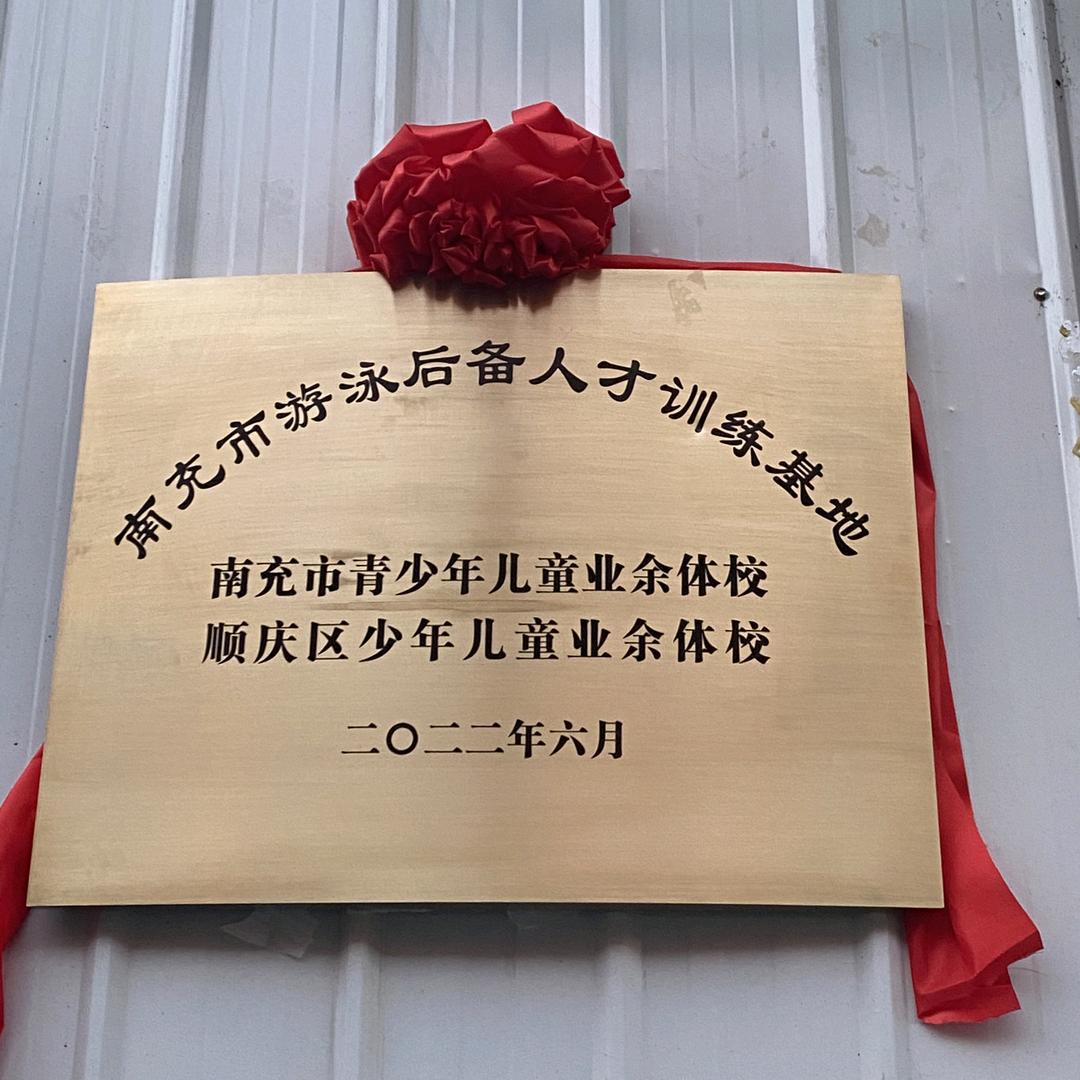 南充市游泳后备人才训练基地
南充市青少年儿童业余体校
顺庆区少年儿童业余体校
二〇二二年六月